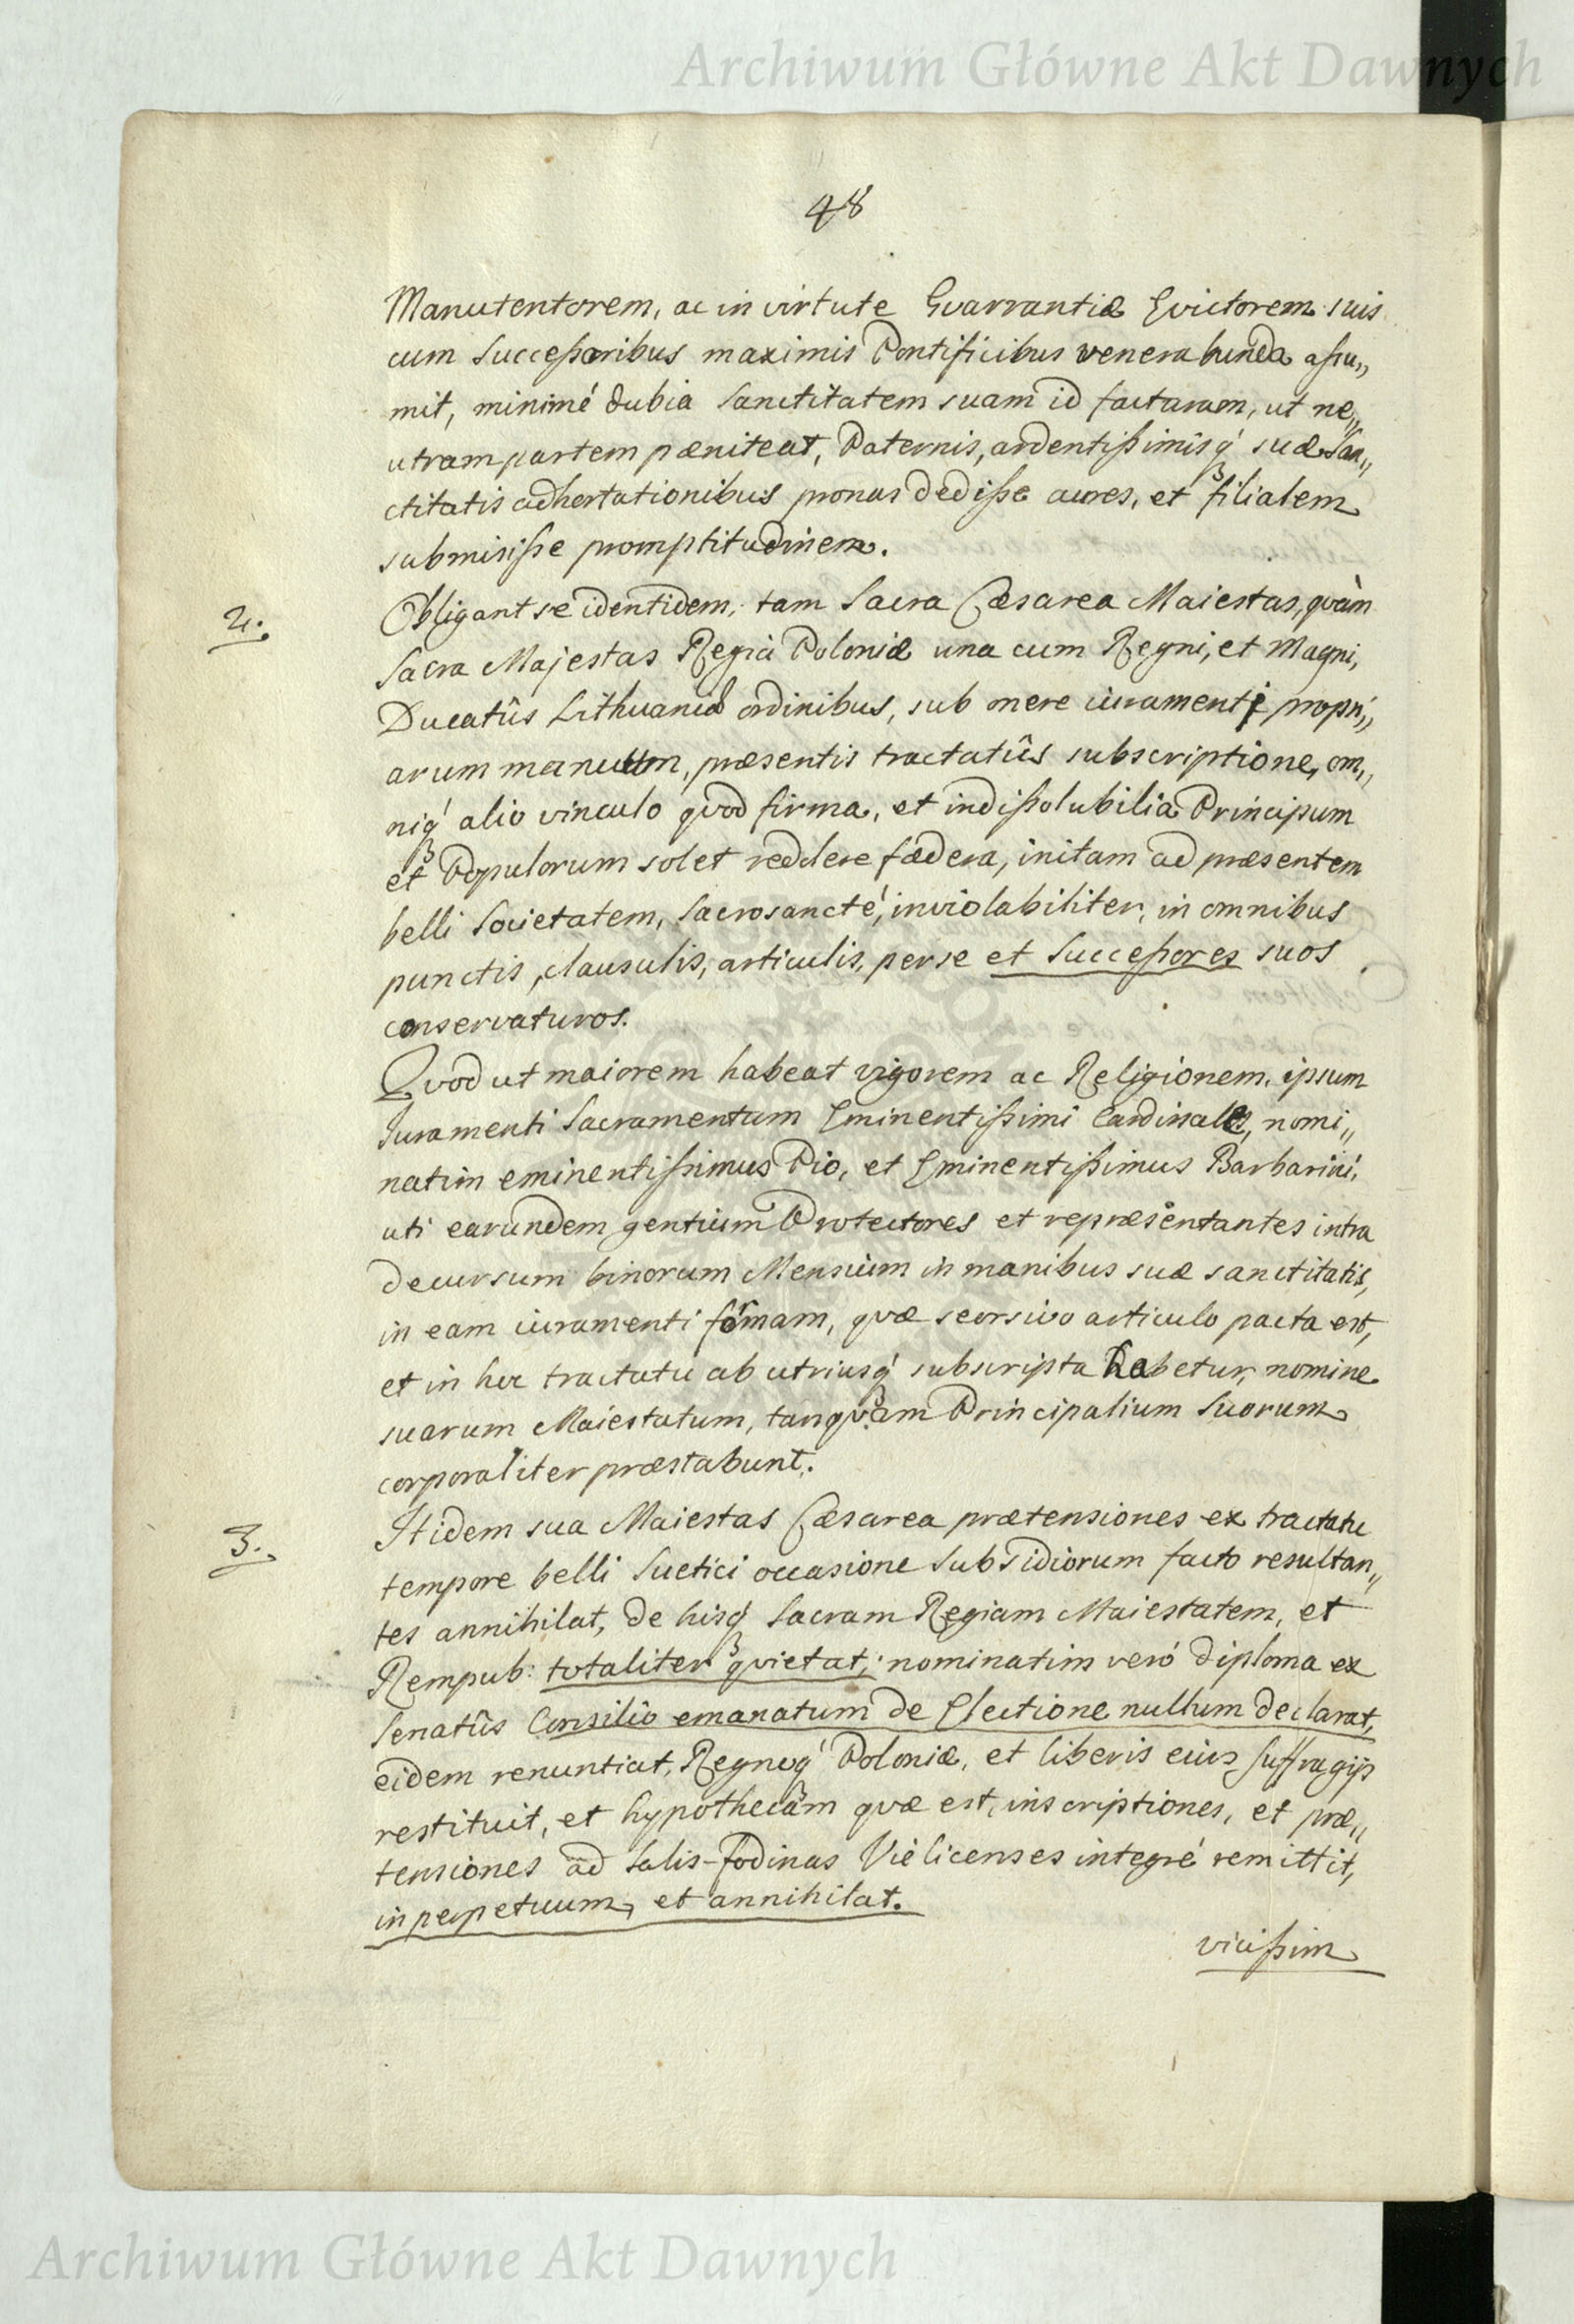 Archiwum Główne Akt Dawnych
48
Manutentorem, ac in virtute Gvarrantiæ Evictorem suis
cum Successoribus maximis Pontificibus venerabunda assu„
mit, minimé dubia Sanctitatem suam id facturam, ut ne„
utram partem pæniteat, Paternis, ardentissimisq́ꝫ suæ San„
ctitatis adhortationibus pronas dedisse aures, et filialem
submisisse promptitudinem.
2. Obligant se identidem, tam Sacra Cæsarea Maiestas, qvàm
Sacra Majestas Regia Poloniæ una cum Regni, et Magni,
Ducatûs Lithuaniæ ordinibus, sub onere iuramenti propri„
arum manuum, præsentis tractatûs subscriptione, om„
niq́ꝫ alio vinculo qvod firma, et indissolubilia Principum
et Populorum solet reddere fædera, initam ad præsentem
belli Societatem, Sacrosancté, inviolabiliter, in omnibus
punctis, clausulis, articulis, per se et Successores suos
conservaturos.
Qvod ut maiorem habeat vigorem ac Religionem, ipsum
Iuramenti Sacramentum Eminentissimi Cardinales, nomi„
natim eminentissimus Pio, et Eminentissimus Barbarini,
uti earundem gentium Protectores et repræsentantes intra
decursum binorum Mensium in manibus suæ sanctitatis,
in eam iuramenti formam, qvæ seorsivo articulo pacta est,
et in hoc tractatu ab utriusq́ꝫ subscripta habetur, nomine
suarum Maiestatum, tanqvam Principalium Suorum
corporaliter præstabunt.
3. Itidem sua Maiestas Cæsarea prætensiones ex tractatu
tempore belli Suetici occasione Subsidiorum facto resultan„
tes annihilat, de hisq́ꝫ Sacram Regiam Maiestatem, et
Rempub: totaliter qvietat; nominatim veró diploma ex
Senatûs Consilio emanatum de Electione nullum declarat,
eidem renuntiat, Regnoq́ꝫ Poloniæ, et liberis eius suffragijs
restituit, et hypothecam qvæ est, inscriptiones, et præ„
tensiones ad Salis-fodinas Vielicenses integré remittit,
in perpetuum, et annihilat.
vicissim
Archiwum Główne Akt Dawnych